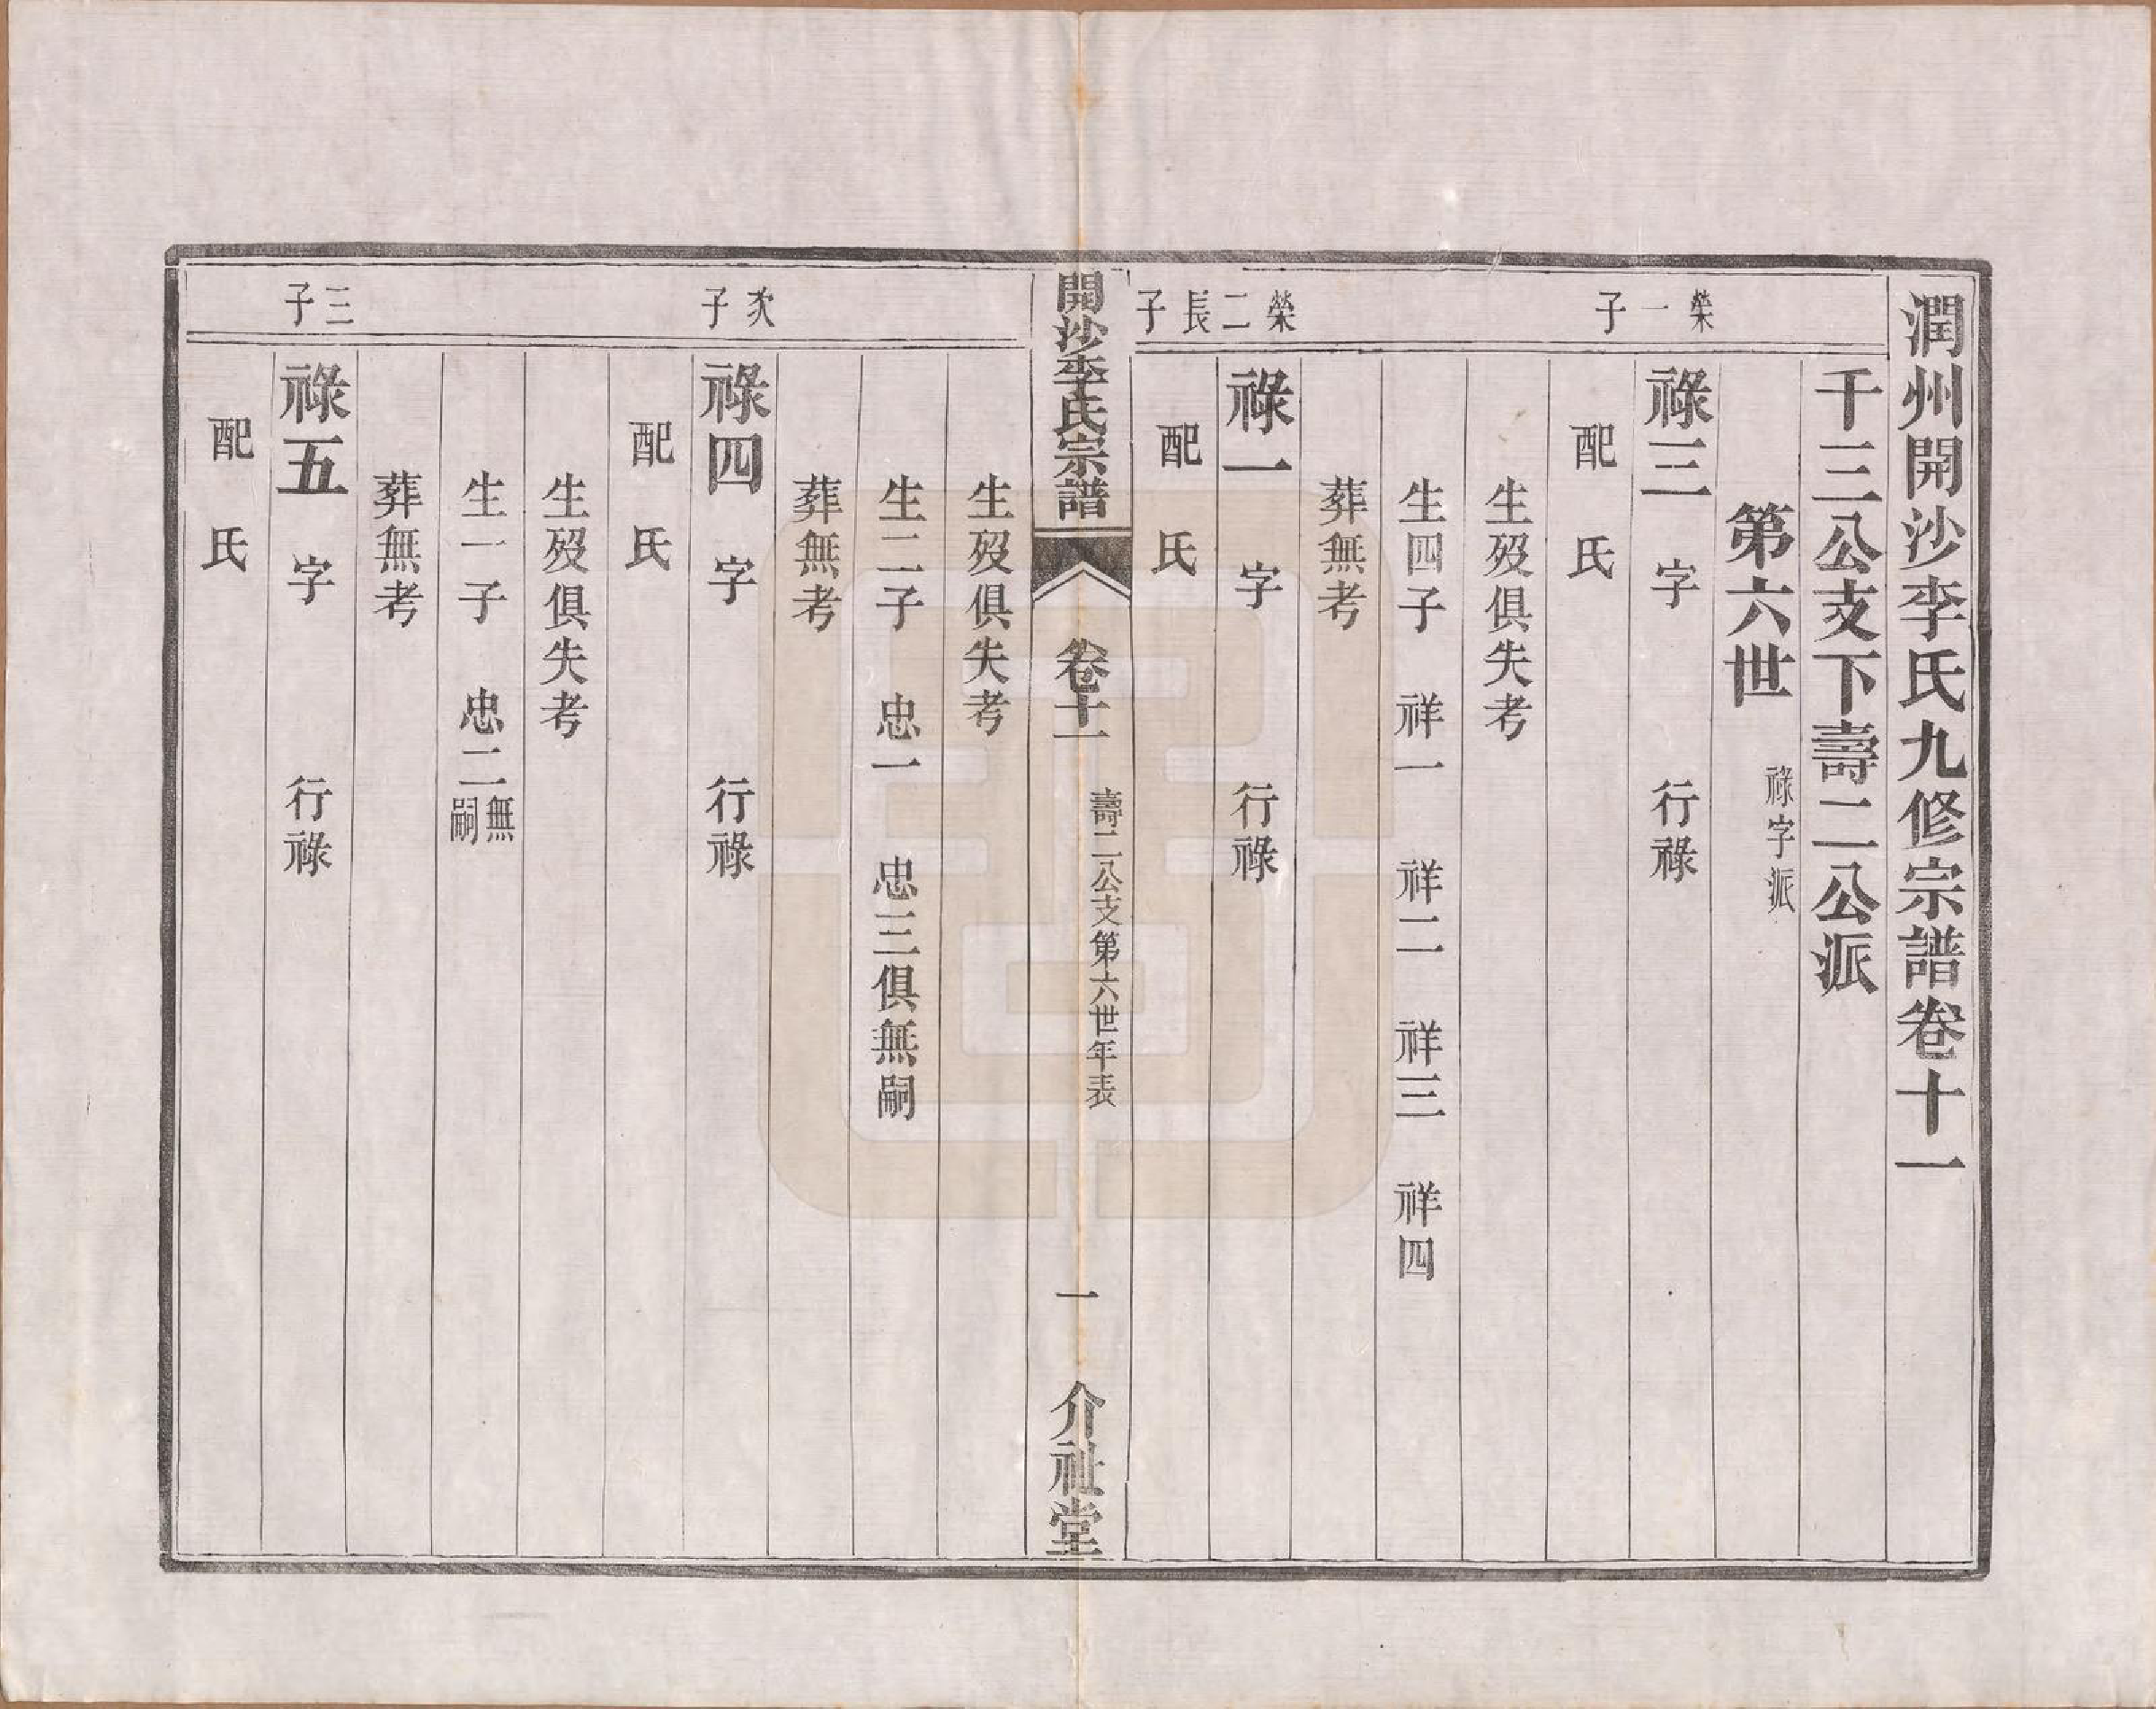 潤州開沙李氏九修宗譜卷十一
千三公支下壽二公派
第六世 祿字派
榮一子
祿三 字 行祿
配 氏
生歿俱失考
生四子 祥一 祥二 祥三 祥四
葬無考
榮二長子
祿一 字 行祿
配 氏
開沙李氏宗譜 卷十一 壽二公支第六世年表 一 介祉堂
生歿俱失考
生二子 忠一 忠三俱無嗣
葬無考
次子
祿四 字 行祿
配 氏
生歿俱失考
生一子 忠二無嗣
葬無考
三子
祿五 字 行祿
配 氏